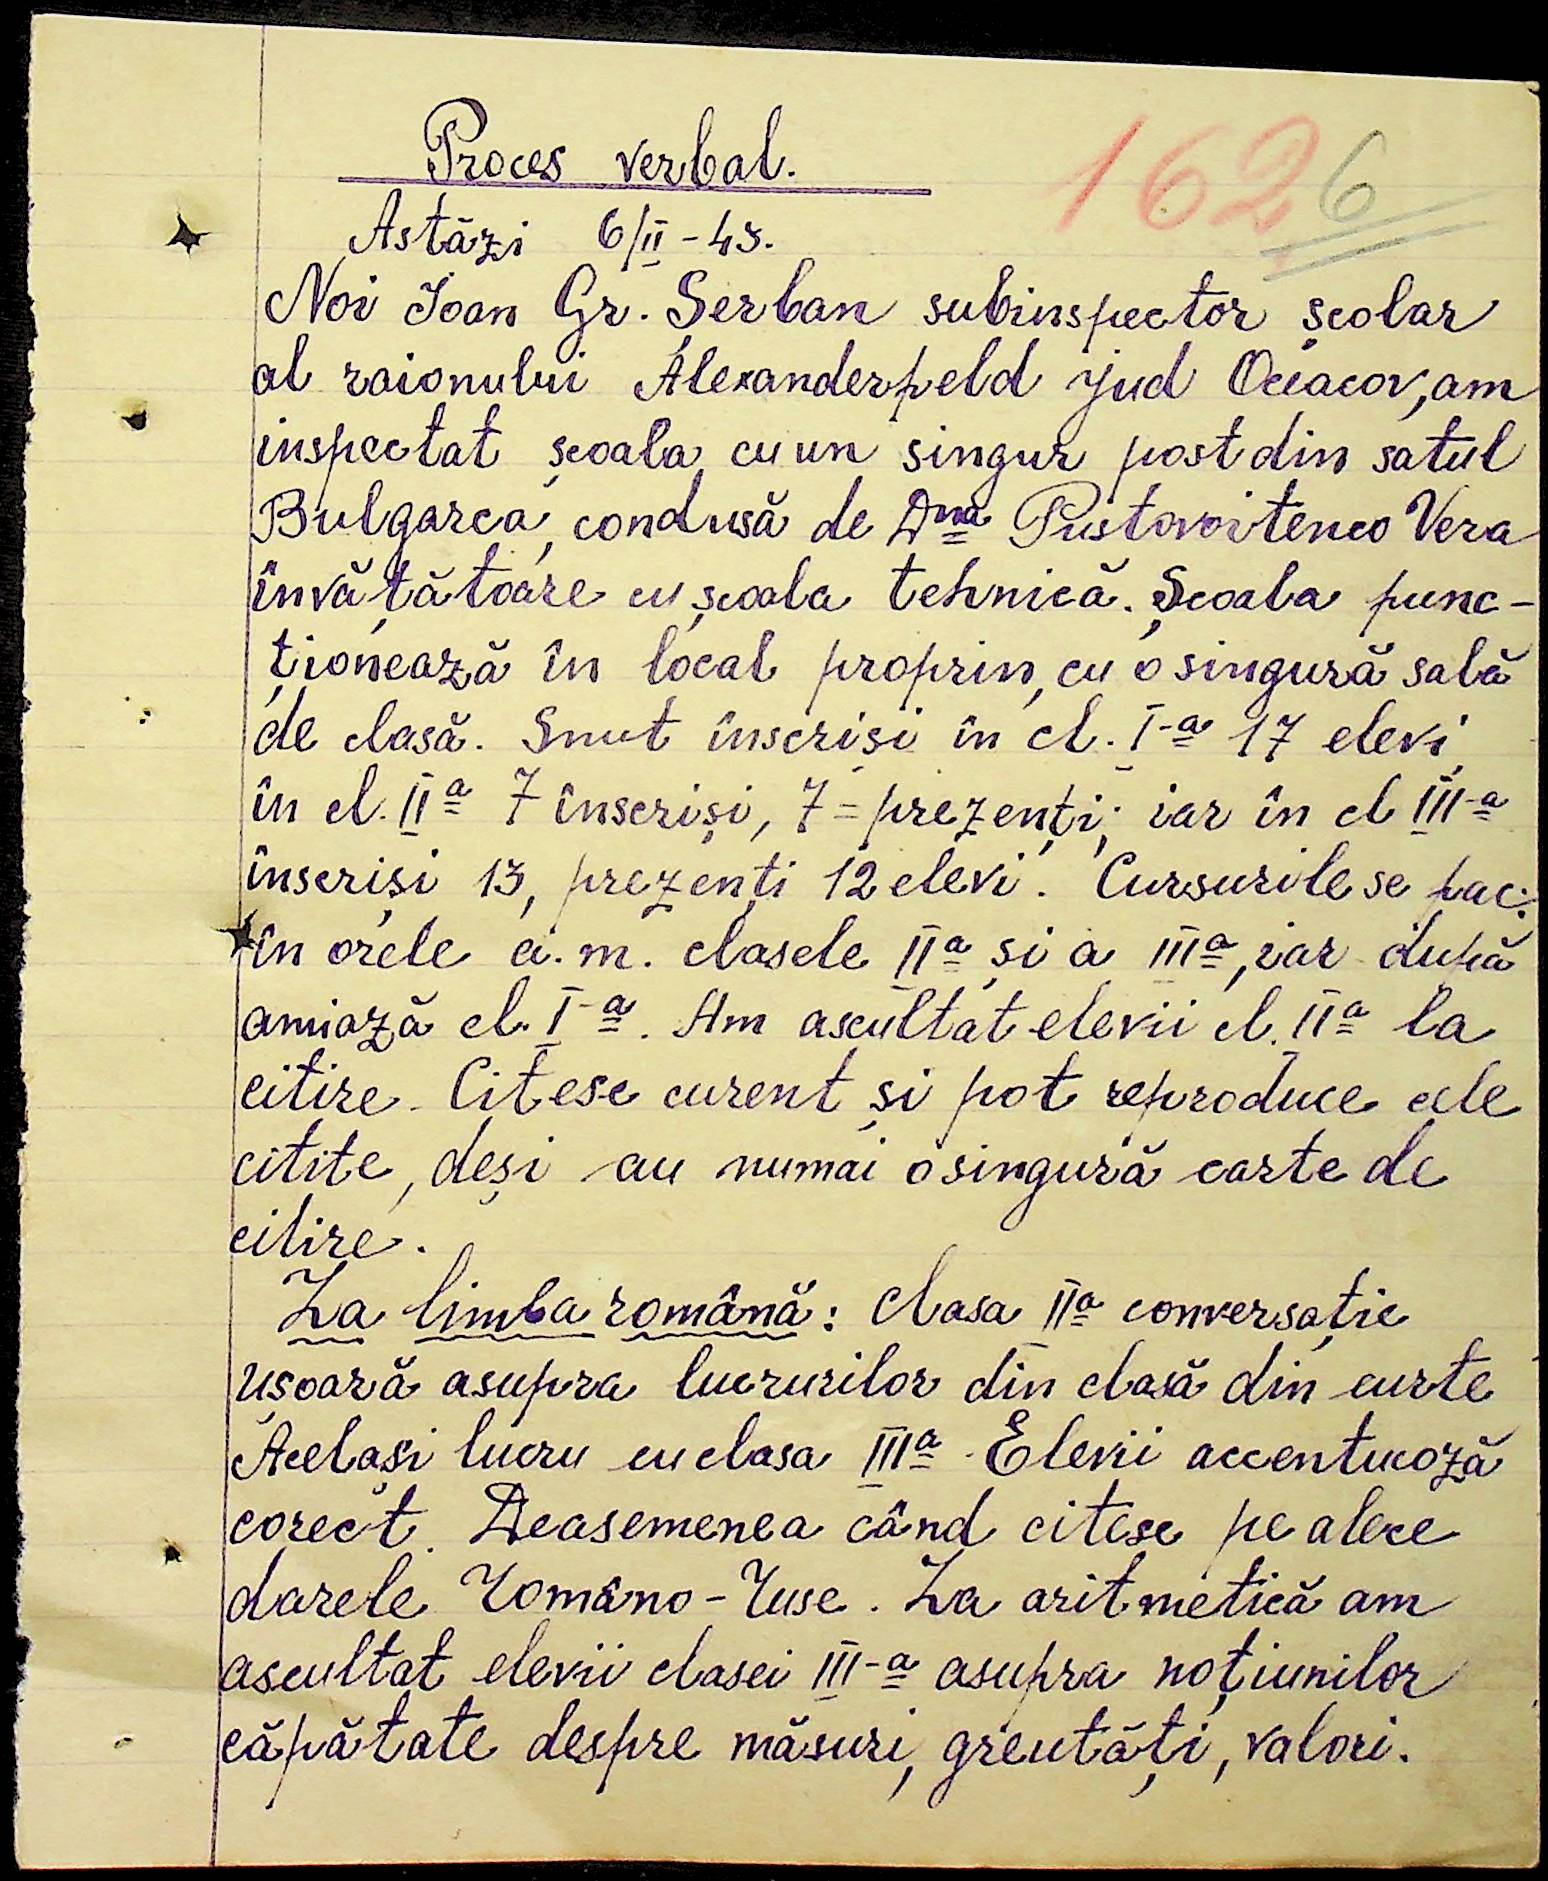 Proces verbal.
162 6
Astăzi 6/II - 43.
Noi Ioan Gr. Șerban subinspector școlar
al raionului Alexanderfeld jud Oceacov, am
inspectat școala cu un singur post din satul
Bulgarca, condusă de Dna Pustovoitenco Vera
învățătoare cu școala tehnică. Școala func-
ționează în local propriu, cu o singură sală
de clasă. Sunt înscriși în cl. I-a 17 elevi,
în cl. IIa 7 înscriși, 7 = prezenți; iar în cl III-a
înscriși 13, prezenți 12 elevi. Cursurile se fac:
în orele a.m. clasele IIa și a IIIa, iar după
amiază cl. I-a. Am ascultat elevii cl. IIa la
citire. Citesc curent și pot reproduce cele
citite, deși au numai o singură carte de
citire.
La limba română: Clasa IIa conversație
ușoară asupra lucrurilor din clasă din curte
Același lucru cu clasa IIIa. Elevii accentuează
corect. Deasemenea când citesc pe abece
darele Româno-Ruse. La aritmetică am
ascultat elevii clasei III-a asupra noțiunilor
căpătate despre măsuri, greutăți, valori.